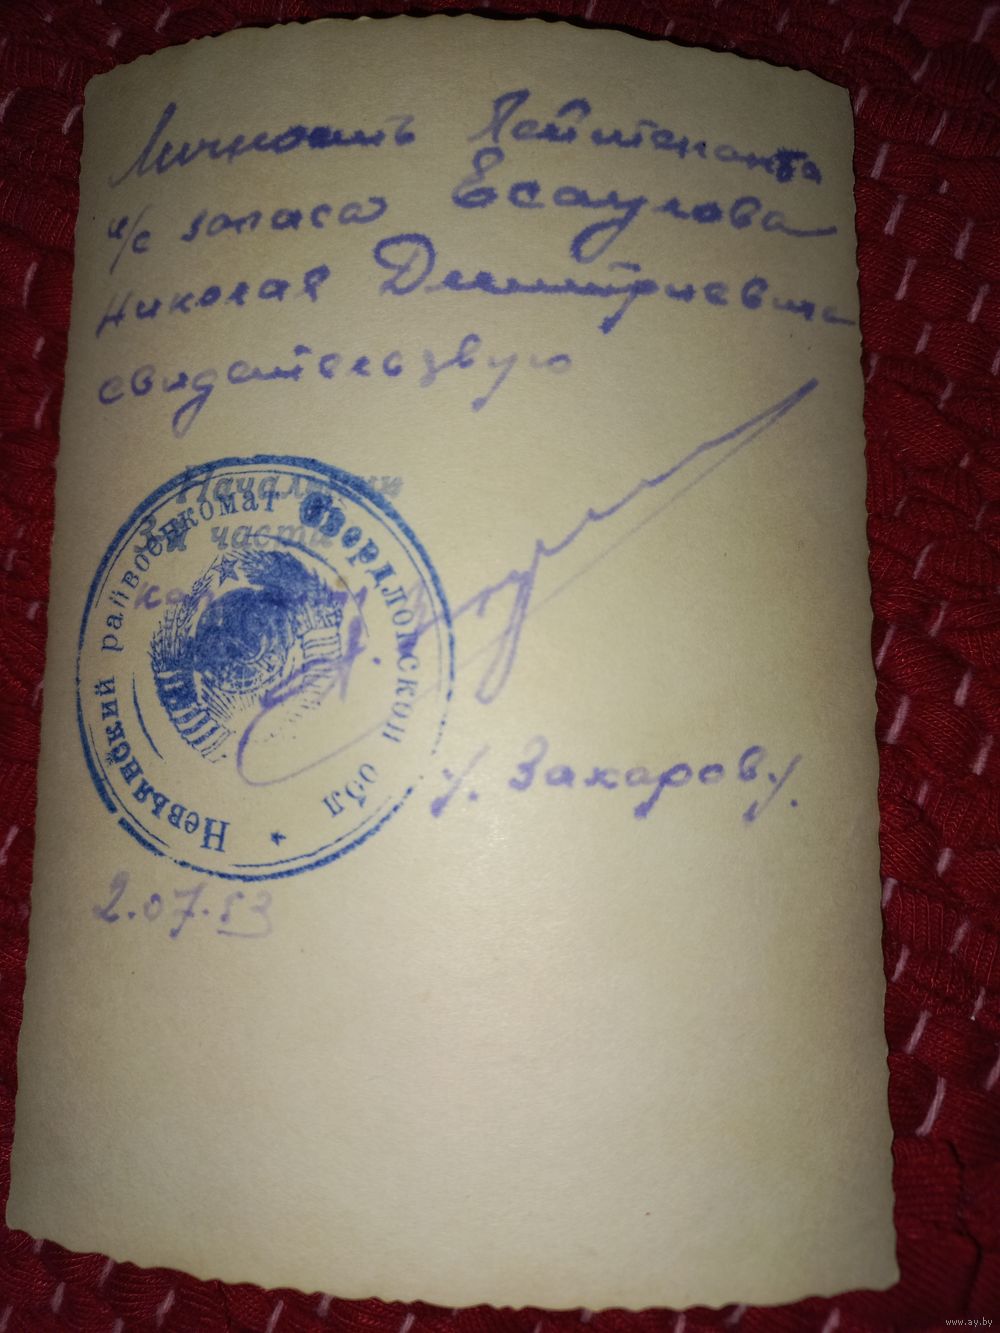 Личность Лейтенанта
и/с запаса Есаулова
Николая Дмитриевича
свидетельзвую
Начальник
3й части
капитан
/. Захаров./.
Невьянский райвоенкомат Свердловской обл
2.07.53
www.ay.by